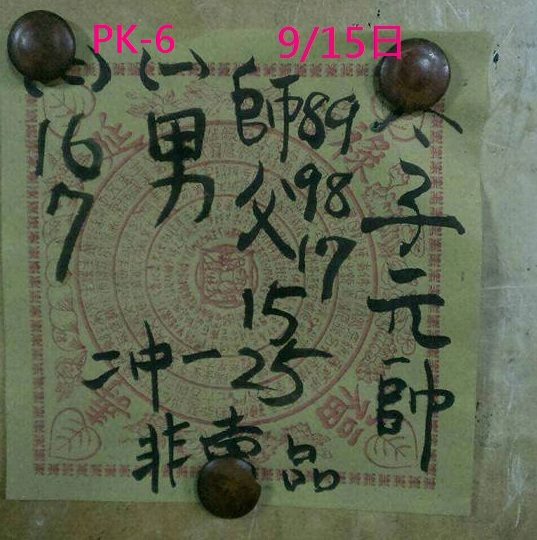 PK-6
9/15日
太子元帥
師父
89
98
17
15
25
(一)
男
(二)
16
7
二冲一
非賣品